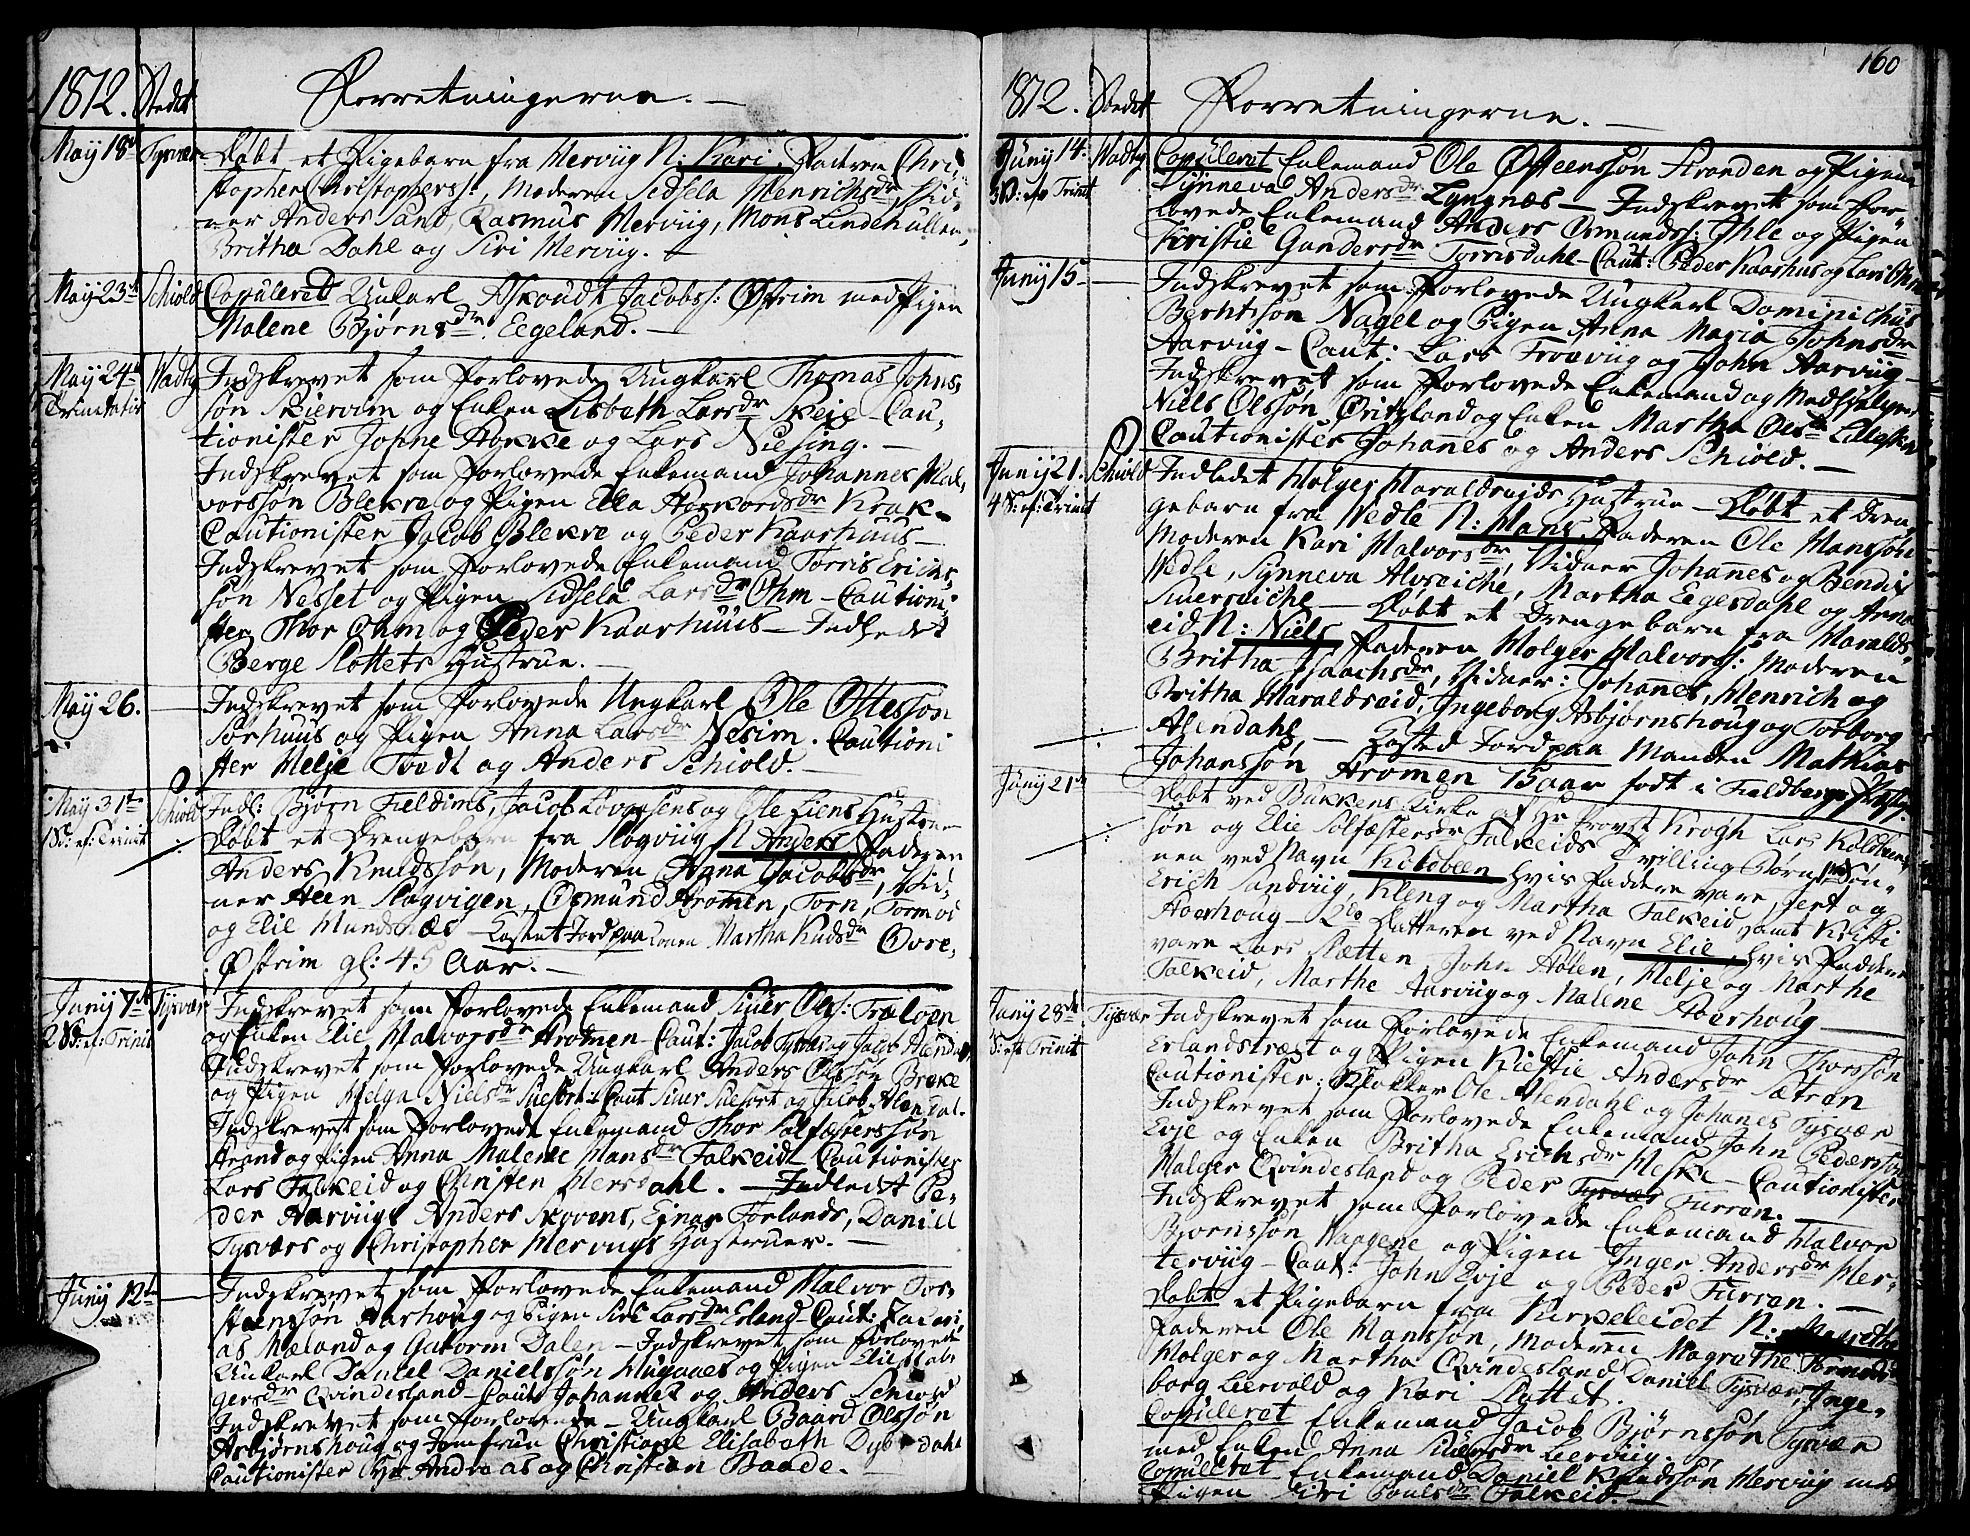 1812. Stedet Forretningerne. —
May 18de Tysvær Døbt et Pigebarn fra Hervüg N: Kari. Faderen Chri-
stopher Christophers:, Moderen Sidsela Henrichsdr, Vid-
ner Anders Sand, Rasmus Hervüg, Mons Lindehullen,
Britha Dahl og Siri Hervüg. —
May 23de Schiold Copuleret Unkarl Askoudt Jacobs: Østrim med Pigen
Malene Bjørnsdr. Eegeland. —
May 24de Wadtz Indskrevet som Forlovede Ungkarl Thomas Johns-
Trinitatis søn Skiervim og Enken Lisbeth Larsdr Skeie – Cau-
tionister Johne Hokke og Lars Niesing. —
Indskrevet som Forlovede Enkemand Johannes Hal-
vorssøn Blekre og Pigen Ella Haavordsdr Krak –
Cautionister Jacob Blekre og Peder Kaarhuus –
Indskrevet som Forlovede Enkemand Torris Erichs-
søn Nesset og Pigen Sidsela Larsdr Ohm – Cautioni-
ster Thor Ohm og Peder Kaarhuus – Indledt
Berge Slottets Hustrue. —
May 26. Indskrevet som Forlovede Ungkarl Ole Ottesson
Sørhuus og Pigen Anna Larsdr Nesim. Cautioni
ster Helje Tvedt og Anders Schiold. —
May 31te Schiold Indl: Bjørn Fieldims, Jacob Lovaasens og Ole Liens Hustruer
1 S: ef: Trinit Døbt et Drengebarn fra Slogvüg N Anders Faderen
Anders Knudssøn, Moderen Anna Jacobsdr, Vid-
ner Aleen Slogvigen, Osmund Aromen, Torn, Tormod
og Elie Mundsnæs – Kastet Jord paa Konen Martha Knudsdr Øvre-
Østrim gl: 45 Aar. —
Juny 7de Tysvær Indskrevet som Forlovede Enkemand Siver Ols: Træløen
2 S: ef: Trinit og Enken Elie Halvorsdr Aromen Caut: Jacob Tysvær og Jacob Alendal
Indskrevet som Forlovede Ungkarl Anders Olssøn Brekke
og Pigen Helga Nielsdr Suesort – Caut Siver Suesort og Jacob Alendal.
Indskrevet som Forlovede Enkemand Thor Solfæstersson
Arand og Pigen Anna Malene Hansdr Falkeid – Cautionister
Lars Falkeid og Christen Hersdahl. – Indledt Pe-
der Aarviigs Anders Skovens, Einar Førlands, Daniel
Tysværs og Christopher Hervügs Hustruer. —
Juny 12te Indskrevet som Forlovede Enkemand Halvor Tor-
steenssøn Aarhoug og Pigen Siri Larsdr Erland – Caut: Zacari-
as Mæland og Gutorm Dalen – Indskrevet som Forlovede
Unkarl Daniel Danielssøn Haugaas og Pigen Elie Hol-
gersdr Qvindesland – Caut Johannes og Anders Schiold
Indskrevet som Forlovede – Ungkarl Baard Olssøn
Asbjørnshoug og Jomfrue Christiane Elisabeth Dybedahl
Cautionister Hr Andreas og Christian Baade. —
160
1812. Stedet Forretningerne. —
Juny 14. Wadtz Copuleret Enkemand Ole Østeenssøn Stranden og Pigen
3 S: ef Trinit Synneva Andersdr Lyngnæs – Indskrevet som For-
lovede Enkemand Anders Osmunds: Ihle og Pigen
Kristie Gundersdr Tyrrisdahl – Caut: Peder Kaarhus og Lars
Juny 15 – Indskrevet som Forlovede Ungkarl Dominichus
Berntssøn Nagel og Pigen Anna Maria Johnsdr
Aarvüg – Caut: Lars Frovüg og John Aarvüg –
Indskrevet som Forlovede Enkemand og Medhielper
Niels Olssøn Qvitzland og Enken Martha Olsdr Lilleskov
Cautionister Johanes og Anders Schiold. —
Juny 21. Schiold Indledt Holger Haraldseids Hustrue – Døbt et Dren-
4 S: ef: Trinit gebarn fra Wedle N: Hans. Faderen Ole Hanssøn
Moderen Kari Halvorsdr, Vidner Johanes og Bendix
Wedle, Synneva Alvseiche, Martha Eegesdahl og Anna
Siverseiche – Døbt et Drengebarn fra Haralds-
eid N: Niels Faderen Holger Halvors: Moderen
Britha Isaachsdr, Vidner: Johanes, Henrich og
Britha Haraldseid, Ingeborg Asbjørnshoug og Torborg
Alendahl – Kasted Jord paa Manden Mathias
Johanssøn Aromen 15 aar født i Fieldberge Præstg.
Juny 21de Døbt ved Bukkens Kirke af Hr Provst Krogh Lars Koldbens-
søn og Elie Solfæstersdr Falkeids Tvilling Børn, Søn-
nen ved Navn Koldbeen hvis Faddere vare, Gert og
Erich Sandvüg, Kleng og Martha Falkeid samt Kristi
Aaerhoug – Datteren ved Navn Elie, hvis Faddere
vare Lars Slætten John Holen, Helje og Marthe
Falkeid, Marthe Aarvüg og Malene Aaerhoug —
Juny 28de Tysvær Indskrevet som Forlovede Enkemand John Thorssøn
5 S: ef Trinit Erlandstræet og Pigen Kiestie Andersdr Sætren
Cautionister: Klokker Ole Alendahl og Johanes Tysvær –
Indskrevet som Forlovede Enkemand John Pederssøn
Evje og Enken Britha Erichsdr Heske – Cautionister
Halger Qvindesland og Peder Tysvær Furran.
Indskrevet som Forlovede Enkemand Halvor
Bjornssøn Waagene og Pigen Inger Andersdr Her-
tervüg – Caut: John Evje og Peder Furran. —
Døbt et Pigebarn fra Kirkeleidet N: Magrethe
Faderen Ole Hanssøn, Moderen Magrethe
Holger og Martha Qvindesland Daniel Tysvær, Inge-
borg Leervold og Kari Slottet.
Copuleret Enkemand Jacob Bjørnssøn Tysvær
med Enken Anna Siversdr Leervüg.
Copulleret Enkemand Daniel Knudssøn Hervüg med
Pigen Siri Poulsdr Falkeid. —